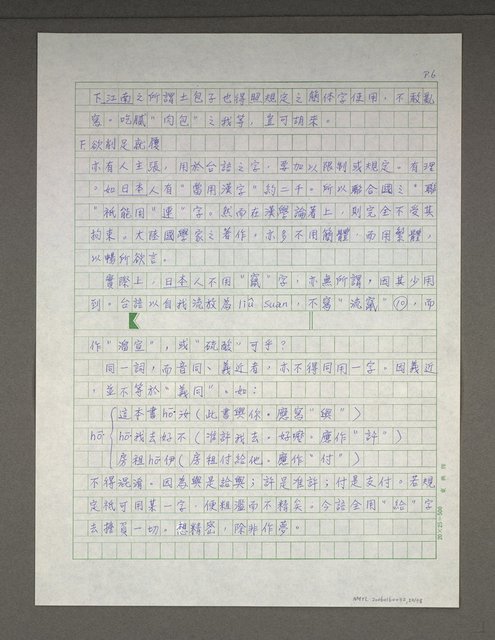 P.6
下江南之所謂土包子也得照規定之簡体字使用，不敢亂
寫。吃膩"肉包"之我等，豈可胡來。
F欲削足就履
亦有人主張，用於台語之字，要加以限制或規定。有理
。如日本人有"當用漢字"約二千。所以聯合國之"聯
"祇能用"連"字。然而在漢學論著上，則完全不受其
拘束。大陸國學家之著作，亦多不用簡體，而用繁體，
以暢所欲言。
實際上，日本人不用"竄"字，亦無所謂，因其少用
到。台語以自我流放為liû suan，不寫"流竄"⑩，而
作"溜宣"，或"硫酸"可乎？
同一詞，而音同、義近者，亦不得同用一字。因義近
，並不等於"義同"。如：
這本書hō͘汝(此書與你。應寫"與")
hō͘ hō͘我去好不(准許我去。好嗎。應作"許")
房租hō͘伊(房租付給他。應作"付")
不得混淆。因為與是給與；許是准許；付是支付。若規
定祇可用某一字，便粗濫而不精矣。今語全用"給"字
去擔負一切。想精密，除非作夢。
20×25=500